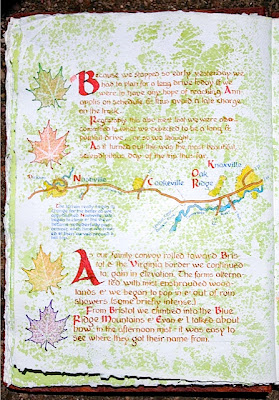 Because we stopped so early yesterday, we
had to plan for a long drive today if we
were to have any hope of reaching Ann
apolis on schedule, & thus avoid a late charge
on the truck.
Regrettably this also meant that we were also
committed to what we expected to be a long &
painful drive, or so we thought.
As it turned out this was the most beautiful
day of the trip thus far.
Knoxville
Oak
Ridge
Nashville
Cookeville
As our family convoy rolled toward Bris-
tol & the Virginia border we continued
to gain in elevation. The farms alterna-
ted with mist enshrouded wood-
lands & we began to pop in & out of rain
showers (some briefly intense.)
From Bristol we climbed into the Blue
Ridge Mountains & Evan & I talked about
how, in the afternoon mist it was easy to
see where they got their name from.